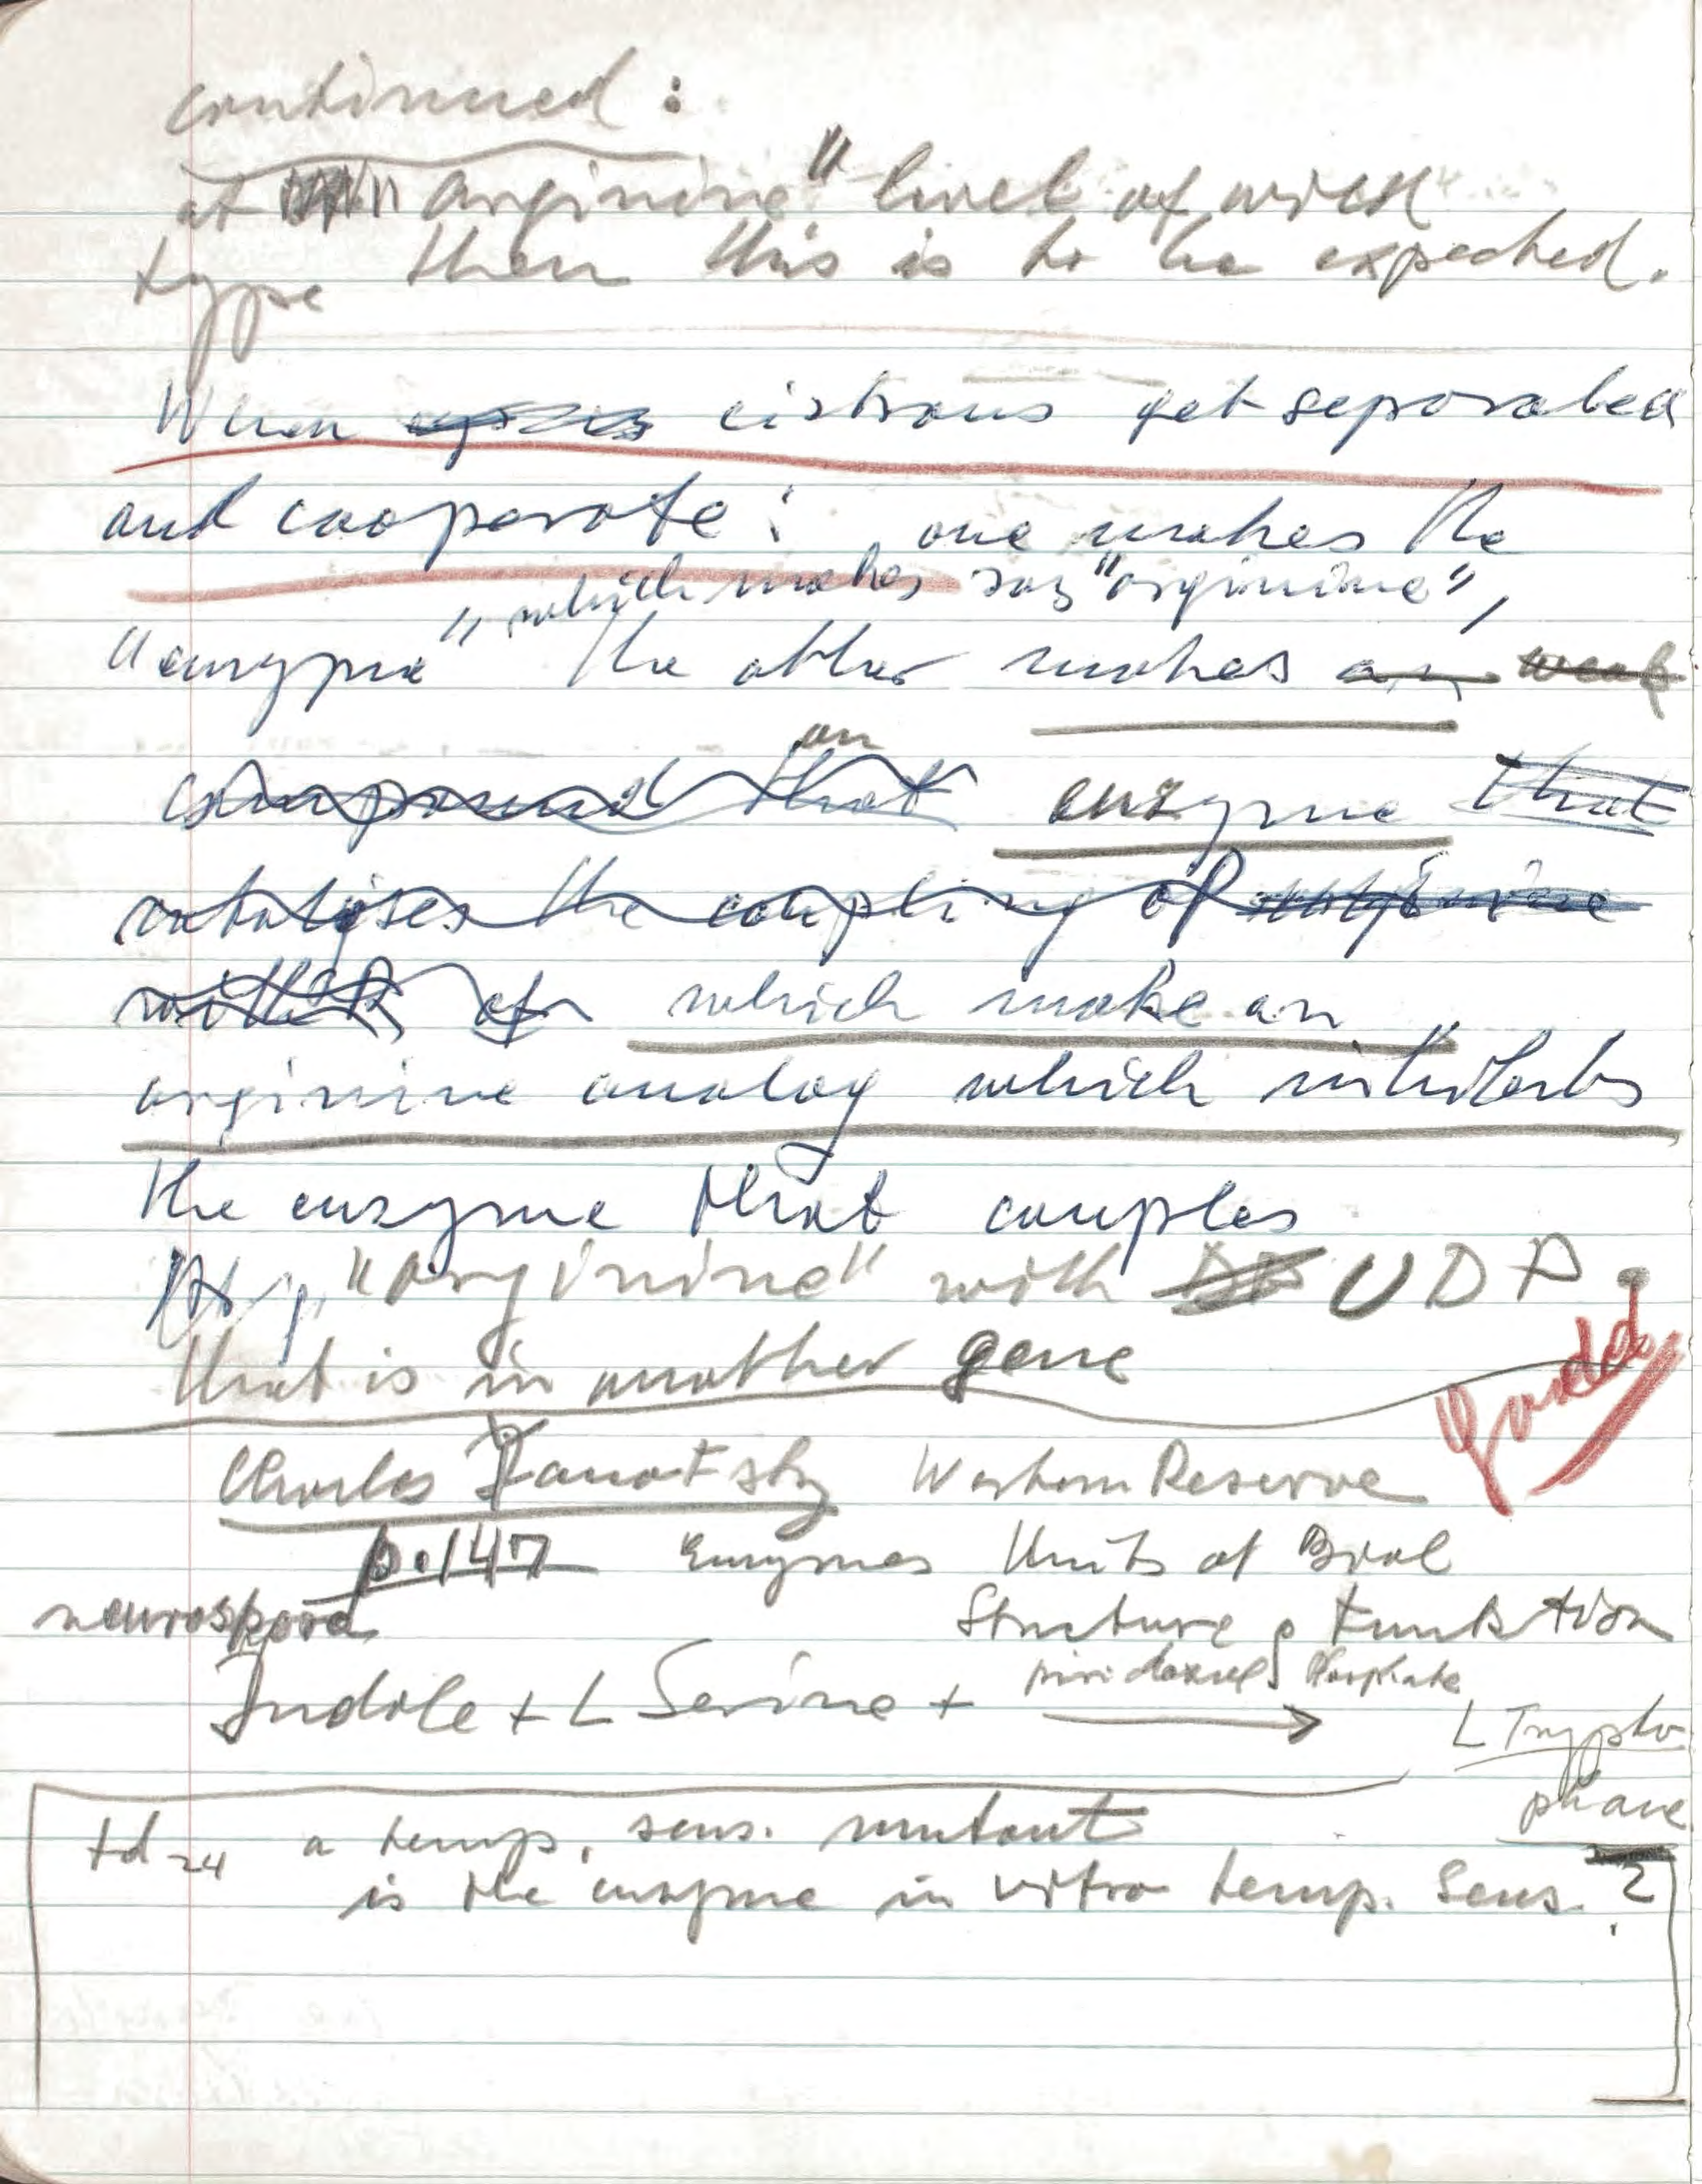 continued :
at "arginine" level of wild
type then this is to be expected.
When cistrons get separated
and cooperate : one makes the
which makes say "arginine",
"enzyme" the other makes an weak
an
compound that enzyme that
catalyses the coupling of arginine
with of which make an
arginine analog which inhibits
the enzyme that couples
"arginine" with UDP.
that is in another gene
Good
Charles Yanofsky Western Reserve
p.147 Enzymes Units of Biol
neurospora Structure & Funktion
piridoxal phosphate
Indole + L Serine + → L Trypto
phane
td 24 a temp. sens. mutant
is the enzyme in vitro temp. sens. ?